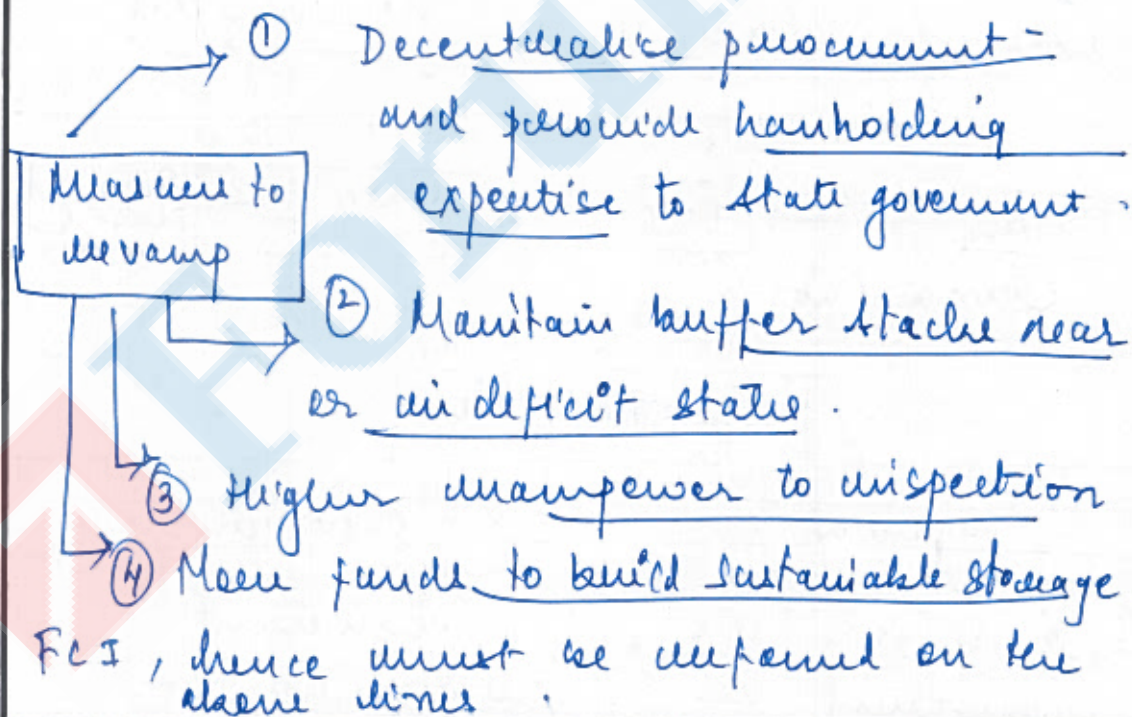 ① Decentralise procurement -
and provide handholding
expertise to State government.
Measure to
revamp
② Maintain buffer stocks near
or in deficit state.
③ Higher manpower to inspection
④ More funds to build sustainable storage
FCI, hence must be reformed on the
above lines.
Forum